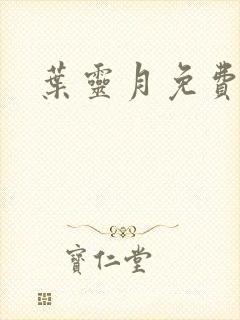 葉靈月免費
寶仁堂